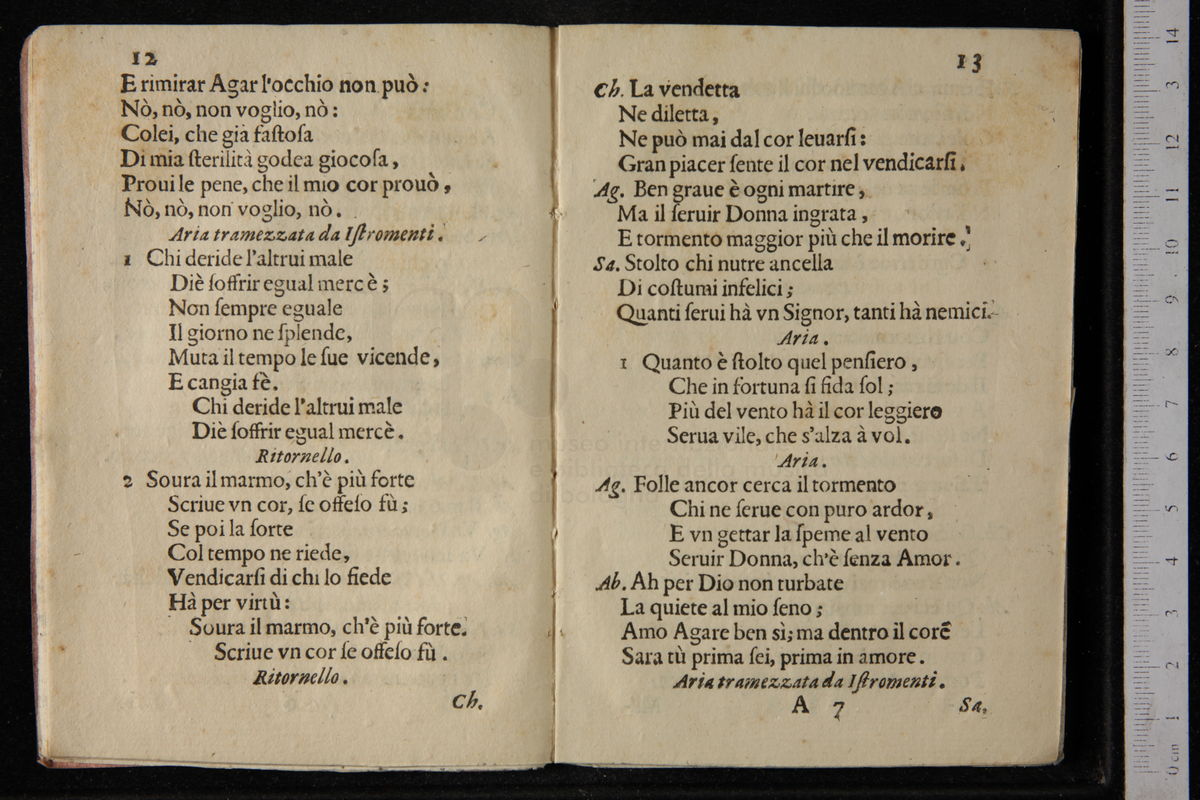 12
E rimirar Agar l'occhio non può:
Nò, nò, non voglio, nò:
Colei, che già faſtoſa
Di mia ſterilità godea giocoſa,
Proui le pene, che il mio cor prouò,
Nò, nò, non voglio, nò.
Aria tramezzata da Iſtromenti.
1 Chi deride l'altrui male
Diè ſoffrir egual mercè;
Non ſempre eguale
Il giorno ne ſplende,
Muta il tempo le ſue vicende,
E cangia fè.
Chi deride l'altrui male
Diè ſoffrir egual mercè.
Ritornello.
2 Soura il marmo, ch'è più forte
Scriue vn cor, ſe offeſo fù;
Se poi la ſorte
Col tempo ne riede,
Vendicarſi di chi lo fiede
Hà per virtù:
Soura il marmo, ch'è più forte.
Scriue vn cor ſe offeſo fù.
Ritornello.
Ch.
13
Ch. La vendetta
Ne diletta,
Ne può mai dal cor leuarſi:
Gran piacer ſente il cor nel vendicarſi.
Ag. Ben graue è ogni martire,
Ma il ſeruir Donna ingrata,
E tormento maggior più che il morire.
Sa. Stolto chi nutre ancella
Di coſtumi infelici;
Quanti ſerui hà vn Signor, tanti hà nemici.
Aria.
1 Quanto è ſtolto quel penſiero,
Che in fortuna ſi fida ſol;
Più del vento hà il cor leggiero
Serua vile, che s'alza à vol.
Aria.
Ag. Folle ancor cerca il tormento
Chi ne ſerue con puro ardor,
E vn gettar la ſpeme al vento
Seruir Donna, ch'è ſenza Amor.
Ab. Ah per Dio non turbate
La quiete al mio ſeno;
Amo Agare ben sì; ma dentro il core
Sara tù prima ſei, prima in amore.
Aria tramezzata da Iſtromenti.
A 7
Sa.
0 cm 1 2 3 4 5 6 7 8 9 10 11 12 13 14